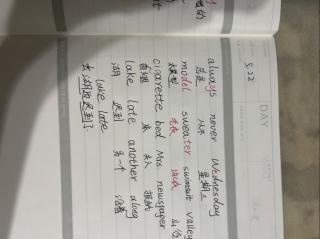 5.22
DAY
always never Wednesday
总是 从不 星期三
model sweater swimsuit valley
模型 毛衣 泳衣 山谷
cigarette bed Mrs. newspaper
香烟 床 夫人 报纸
lake late another along
湖 迟到 另一个 沿着
lake late
去湖边迟到了.